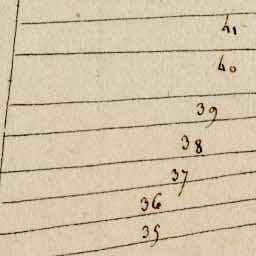 41
40
39
38
37
36
35